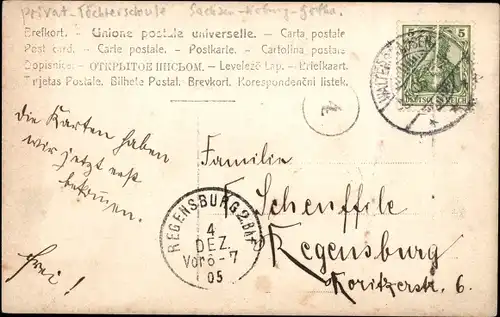 Privat-Töchterschule Sachsen-Koburg-Gotha.
Brefkort. - Unione postale universelle. - Carta postale
Post card. - Carte postale. - Postkarte. - Cartolina postale
Dopisnice. - ОТКРЫТОЕ ПИСЬМО. - Levelező Lap. - Briefkaart.
Tarjetas Postale. Bilhete Postal. Brevkort. Korespondenční listek.
5 5
DEUTSCHES REICH
WALTERSHAUSEN
2
die Karten haben
wir jetzt erst
bekommen.
Familie
Schenffele
Regensburg
Koritzerstr. 6.
REGENSBURG 2. BHF.
4
DEZ.
Vor 6-7
05